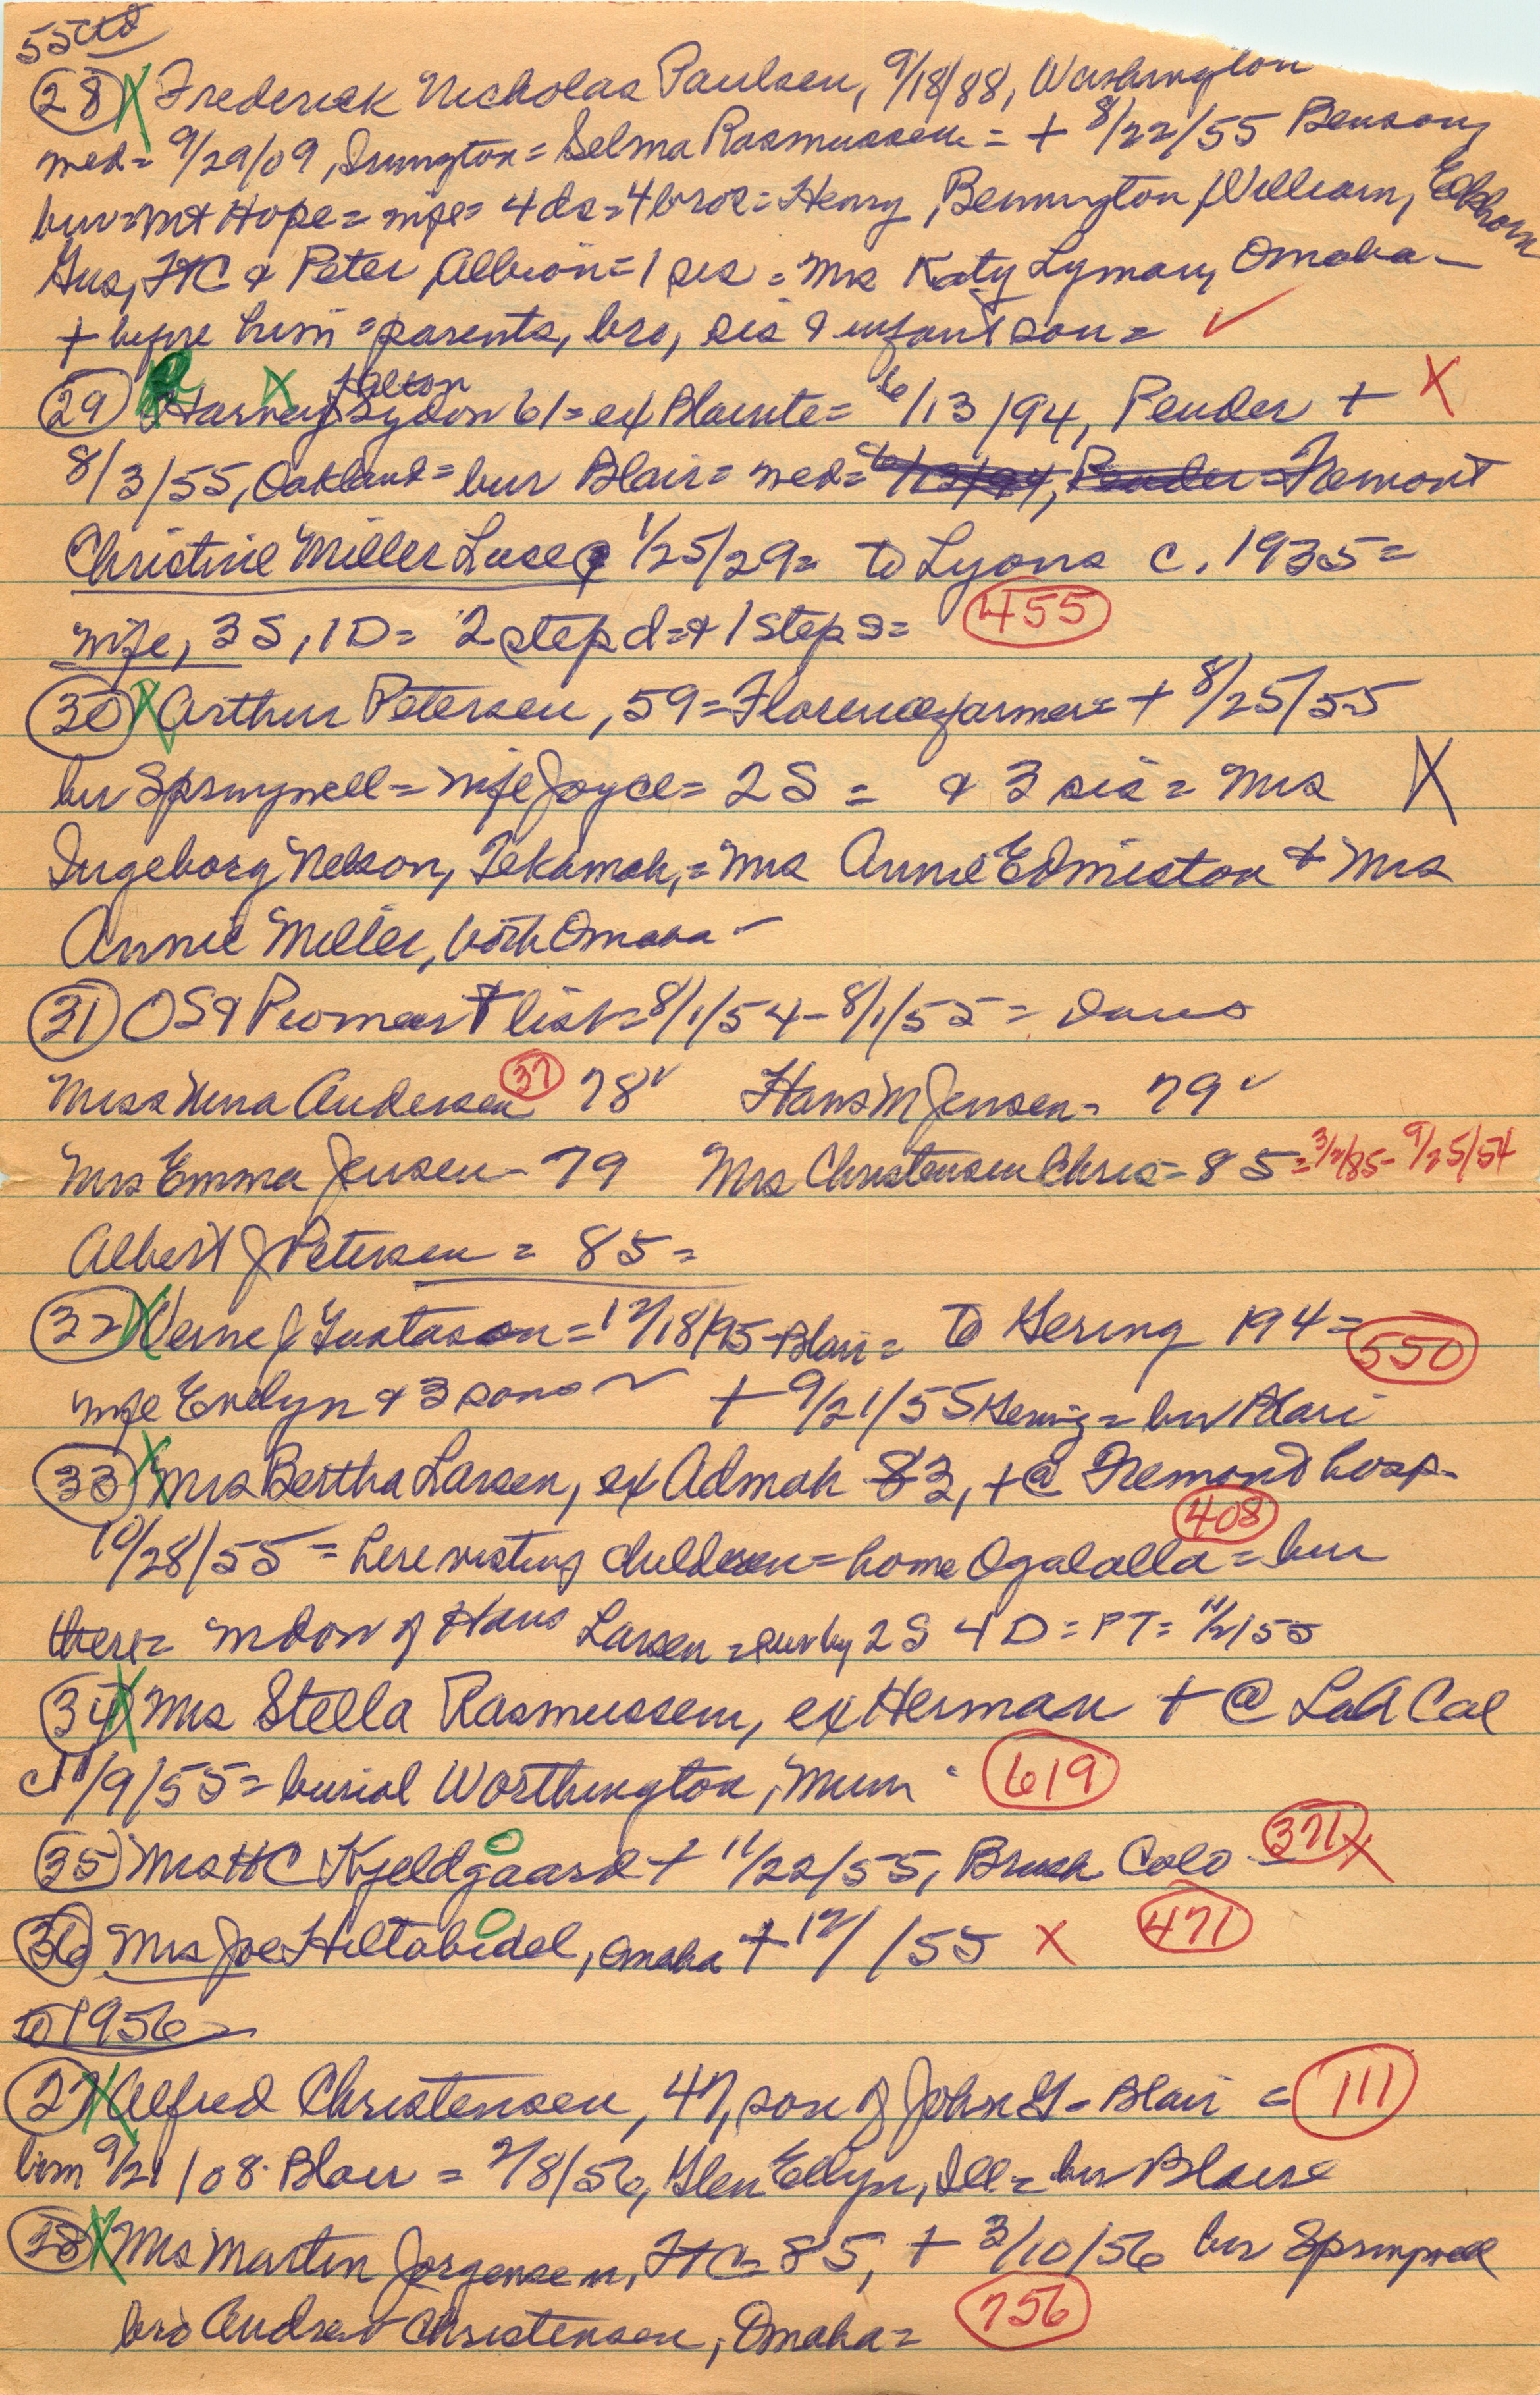 55ctd
(28) X Frederick Nicholas Paulsen, 9/18/88, Washington
med= 9/29/09, Irvington = Selma Rasmussen = + 8/22/55 Benson,
bur=Mt Hope = wife= 4ds=4bros=Henry, Bennington, William, Elkhorn
Gus, FtC & Peter, Albion=1 sis = Mrs Katy Lyman, Omaha-
+ before him = parents, bro, sis & infant son= ✓
(29) X Harvey Lydon 61=ex Blairite= 6/13/94, Pender + X
8/3/55, Oakland= bur Blair= med= 6/13/94, Pender = Fremont
Christine Miller Luse 1/25/29= to Lyons c. 1935=
wife, 3S, 1D= 2 step d=& 1 step s= (455)
(30) X Arthur Petersen, 59=Florence farmer= + 8/25/55
bur Springwell= wife Joyce= 2S = & 3 sis = Mrs X
Ingeborg Nelson, Tekamah,= Mrs Anne Edmiston & Mrs
Annie Miller, both Omaha-
(31) OS& Pioneers + list=8/1/54-8/1/55= Danes
Miss Nena Andersen (37) 78 ✓ Hans M Jensen= 79 ✓
Mrs Emma Jensen-79 Mrs Christensen Chris=85=3/2/85-9/25/54
Albert J Petersen = 85=
(32) X Verne J Gustason=12/18/95-Blair= to Gering 194= (550)
wife Evelyn & 3 sons ~ + 9/21/55 Gering= bur Blair
(33) X Mrs Bertha Larsen, ex Admah 83, +@ Fremont hosp-
10/28/55= here visiting children=home Ogalalla= bur (408)
there= widow of Hans Larsen = sur by 2S 4D=PT= 11/2/55
(34) X Mrs Stella Rasmussen, ex Herman + @ LaA Cal
c11/9/55= burial Worthington, Minn - (619)
(35) Mrs HC Kjeldgaard + 11/22/55, Brush Colo - (371) X
(36) Mrs Joe Hiltabidel, Omaha + 12/ /55 X (471)
to 1956=
(27) X Alfred Christensen, 47, son of John G- Blair = (111)
born 9/21/08 Blair = 2/8/56, Glen Ellyn, Ill= bur Blair
(28) X Mrs Martin Jorgensen, FtC=85, + 3/10/56 bur Springwell
bro Andrew Christensen, Omaha= (756)